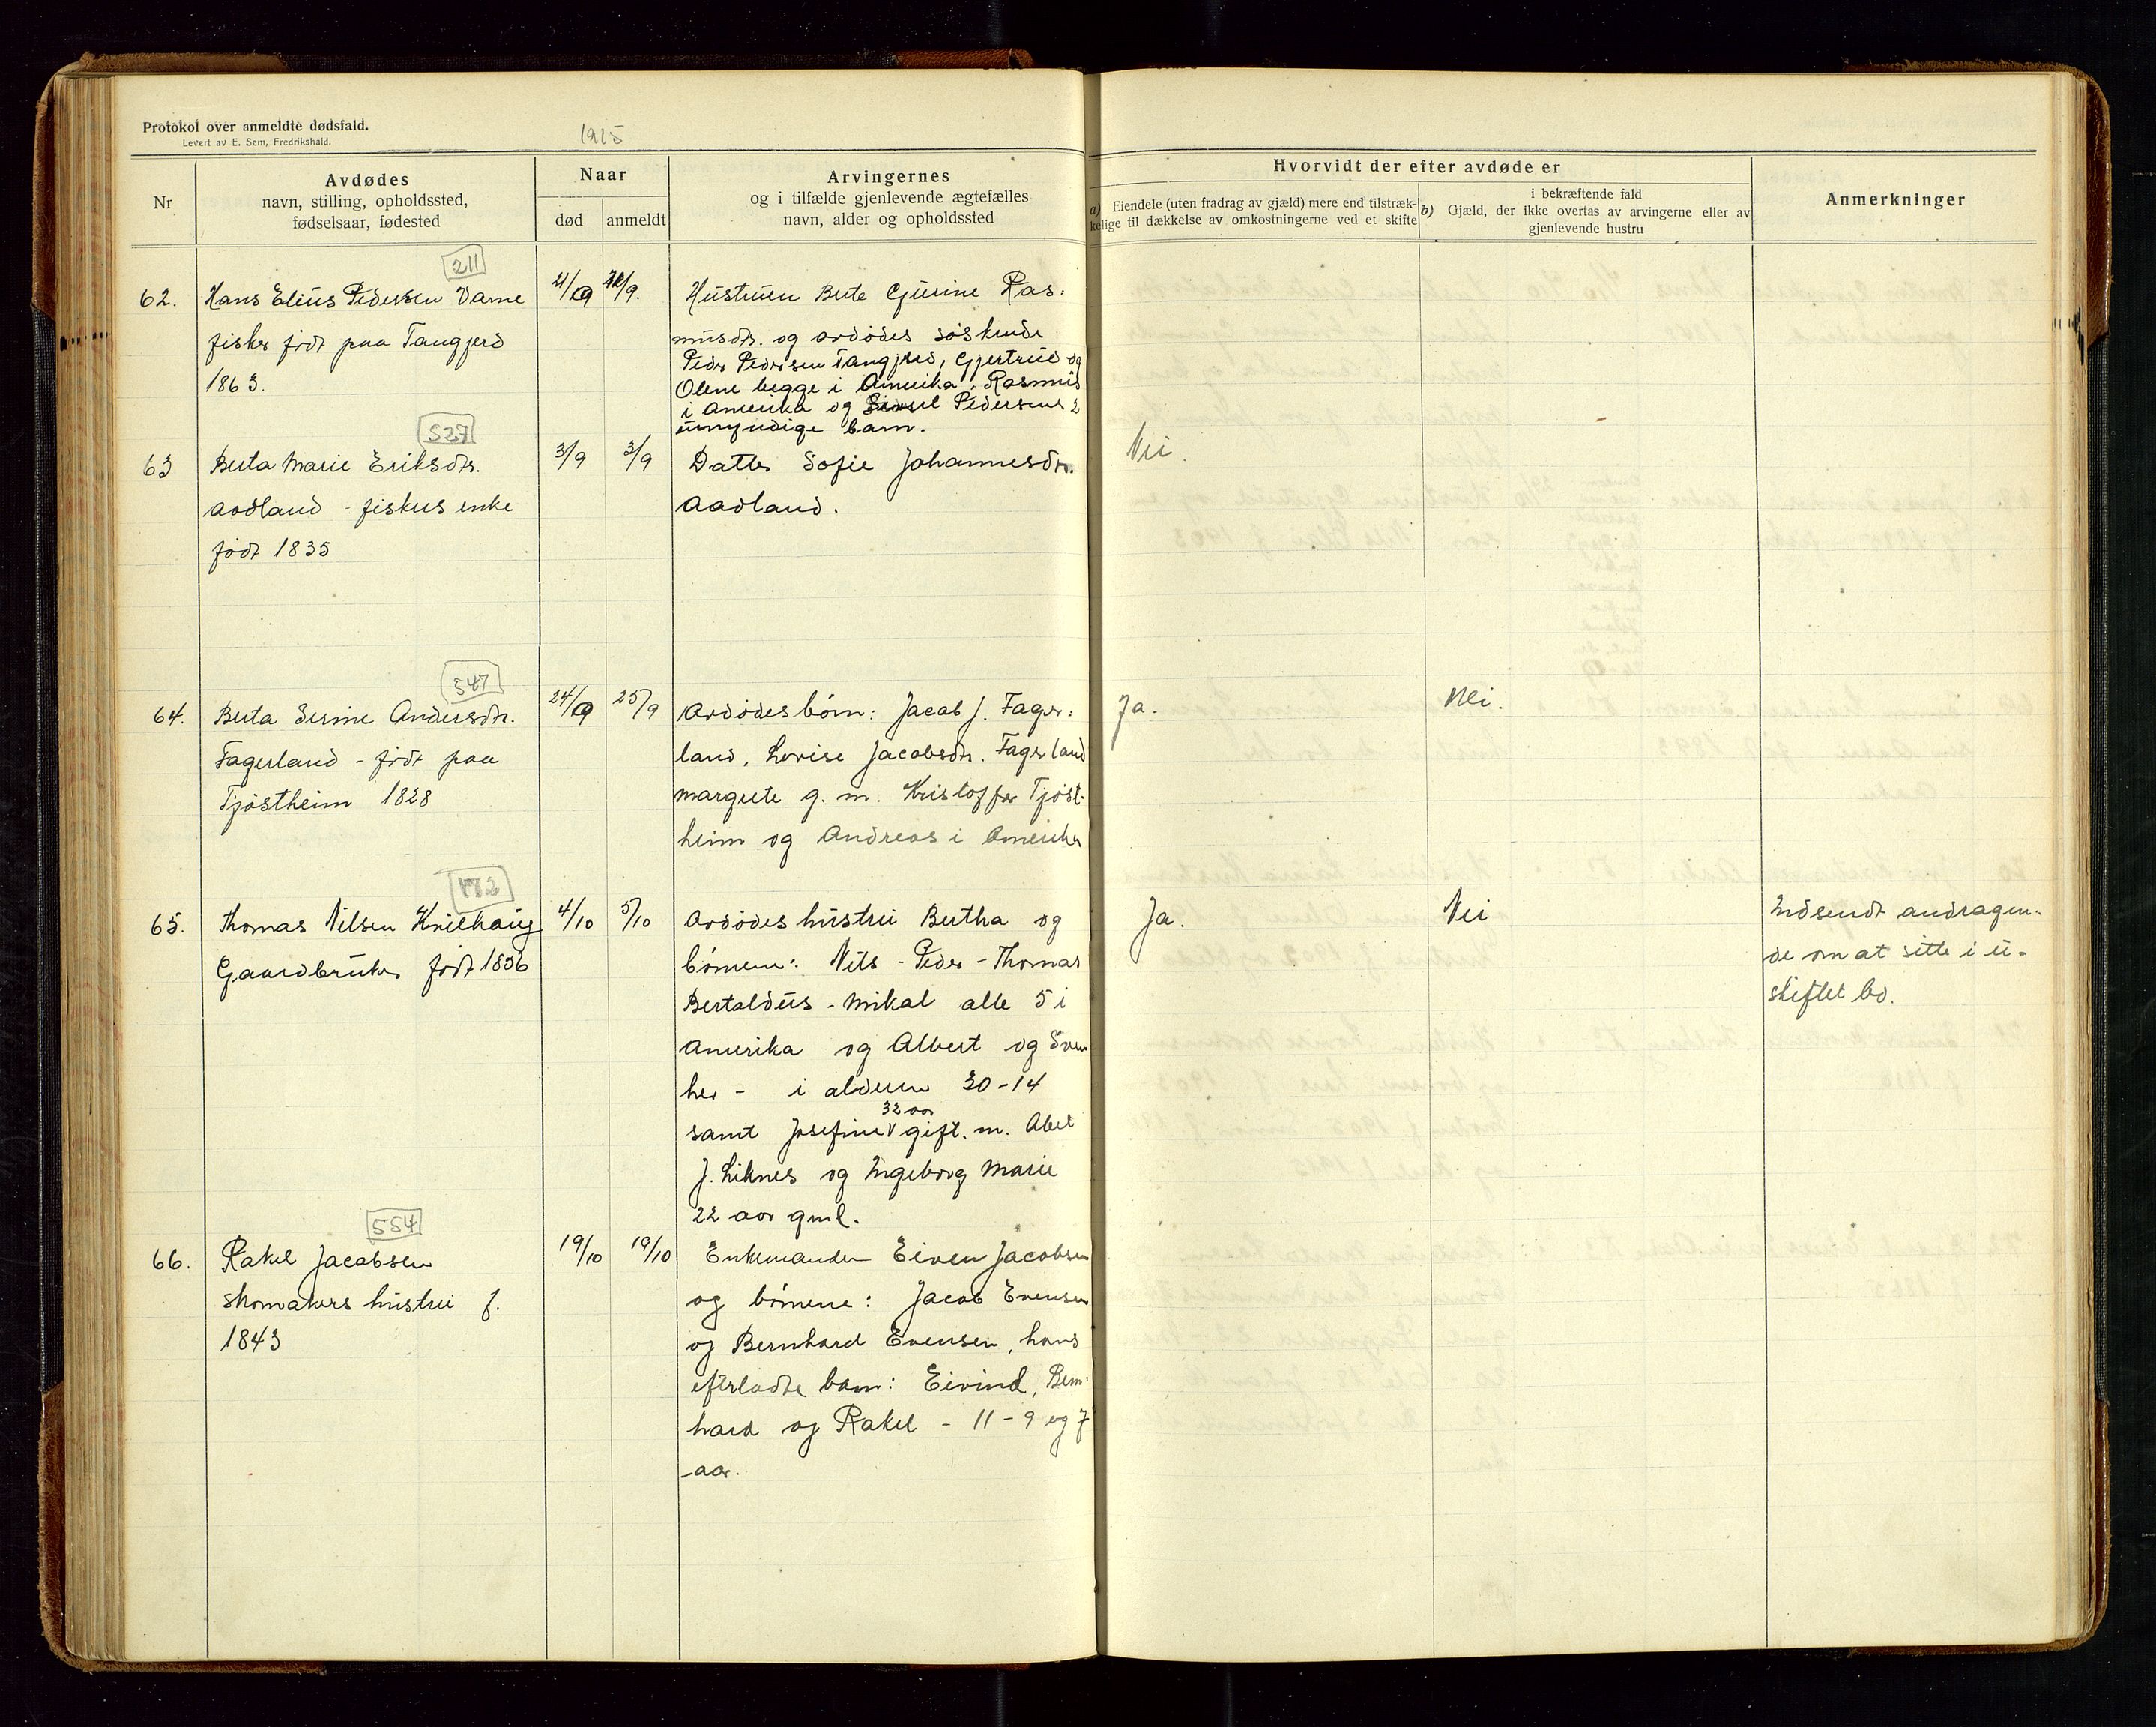 Protokol over anmeldte dødsfald.
Levert av E. Sem, Fredrikshald.
1915
Nr
Avdødes
navn, stilling, opholdssted,
fødselsaar, fødested
Naar
død
anmeldt
Arvingernes
og i tilfælde gjenlevende ægtefælles
navn, alder og opholdssted
Hvorvidt der efter avdøde er
a) Eiendele (uten fradrag av gjæld) mere end tilstræk-
kelige til dækkelse av omkostningerne ved et skifte
i bekræftende fald
b) Gjæld, der ikke overtas av arvingerne eller av
gjenlevende hustru
Anmerkninger
211
62. Hans Elius Pedersen Varne
fisker født paa Tangjerd
1863.
21/9
/9.
Hustruen Berte Gjurine Ras-
musdtr. og avdødes søskende
Peder Pedersen Tangjerd, Gjertrud og
Olene begge i Amerika, Rasmus
i Amerika og Pedersens 2
umyndige barn.
527
63 Berta Marie Eriksdtr.
Aadland - fiskers enke
født 1835
3/9
3/9
Datter Sofie Johannesdtr.
Aadland.
Nei.
547
64. Berta Serine Andersdtr.
Fagerland - født paa
Tjøstheim 1828
24/9
25/9
Avdødes børn: Jacob J. Fager-
land, Lovise Jacobsdtr. Fagerland
Margrete g. m. Kristoffer Tjøst-
heim og Andreas i Amerika
Ja.
Nei.
172
65. Thomas Nilsen Knilhaug
Gaardbruker født 1856
4/10
5/10
Avdødes hustru Bertha og
børnene: Nils - Peder - Thomas
Bertoldus - Mikal alle 5 i
Amerika og Albert og Sven
her - i alderen 30-14
32 aar
samt Josefine gift. m. Abel
J. Liknes og Ingeborg Marie
22 aar gml.
Ja.
Nei
Indsendt andragen-
de om at sitte i u-
skiftet bo.
554
66. Rakel Jacobsen
skomakers hustru f.
1843
19/10
19/10
Enkemanden Eiven Jacobsen
og børnene: Jacob Evensen
og Bernhard Evensen, hans
efterladte barn: Eivind, Bern-
hard og Rakel - 11 - 9 og 7
-aar.